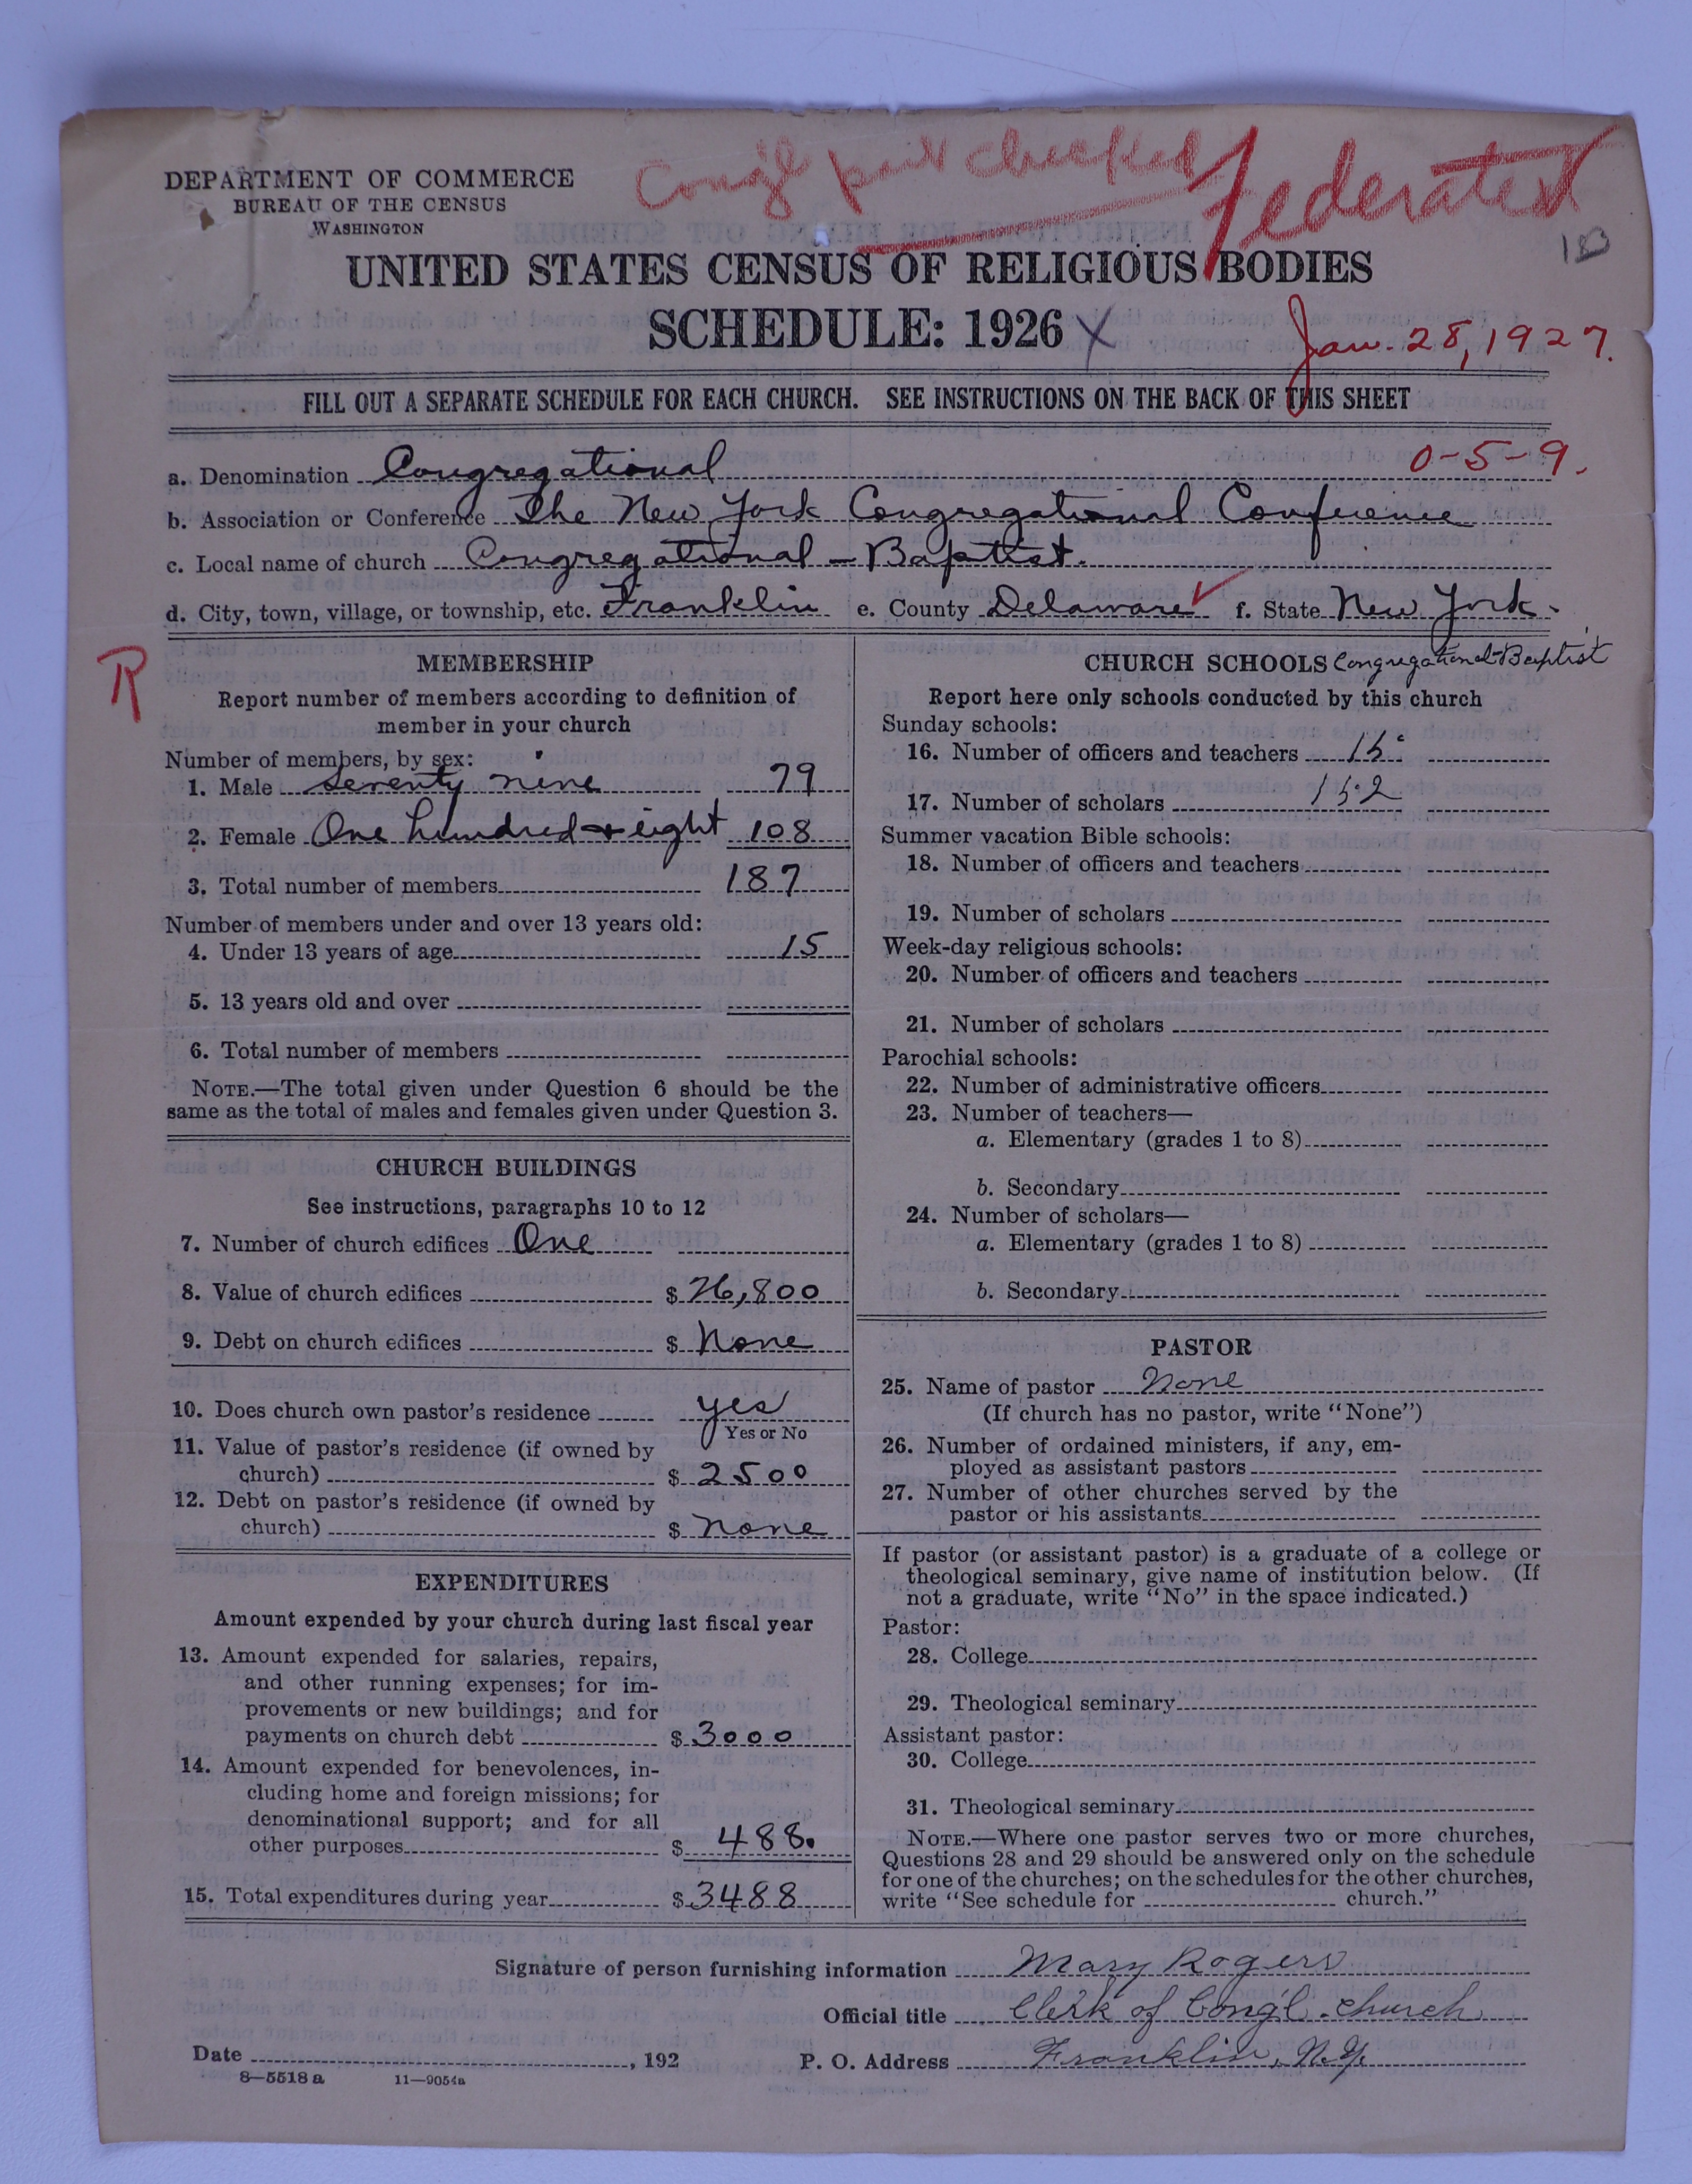 Cong'l part checked
Federated
DEPARTMENT OF COMMERCE
BUREAU OF THE CENSUS
WASHINGTON
UNITED STATES CENSUS OF RELIGIOUS BODIES
SCHEDULE: 1926 X
Jan. 28, 1927.
FILL OUT A SEPARATE SCHEDULE FOR EACH CHURCH. SEE INSTRUCTIONS ON THE BACK OF THIS SHEET
0-5-9.
a. Denomination Congregational
b. Association or Conference The New York Congregational Conference
c. Local name of church Congregational - Baptist.
d. City, town, village, or township, etc. Franklin e. County Delaware f. State New York.
R
MEMBERSHIP
Report number of members according to definition of
member in your church
Number of members, by sex:
1. Male seventy nine 79
2. Female One hundred + eight 108
3. Total number of members 187
Number of members under and over 13 years old:
4. Under 13 years of age 15
5. 13 years old and over
6. Total number of members
NOTE.—The total given under Question 6 should be the
same as the total of males and females given under Question 3.
CHURCH BUILDINGS
See instructions, paragraphs 10 to 12
7. Number of church edifices One
8. Value of church edifices $ 26,800
9. Debt on church edifices $ None
10. Does church own pastor's residence yes
Yes or No
11. Value of pastor's residence (if owned by
church) $ 2500
12. Debt on pastor's residence (if owned by
church) $ none
EXPENDITURES
Amount expended by your church during last fiscal year
13. Amount expended for salaries, repairs,
and other running expenses; for im-
provements or new buildings; and for
payments on church debt $ 3000
14. Amount expended for benevolences, in-
cluding home and foreign missions; for
denominational support; and for all
other purposes $ 488.
15. Total expenditures during year $ 3488
CHURCH SCHOOLS Congregational-Baptist
Report here only schools conducted by this church
Sunday schools:
16. Number of officers and teachers 15
17. Number of scholars 152
Summer vacation Bible schools:
18. Number of officers and teachers
19. Number of scholars
Week-day religious schools:
20. Number of officers and teachers
21. Number of scholars
Parochial schools:
22. Number of administrative officers
23. Number of teachers—
a. Elementary (grades 1 to 8)
b. Secondary
24. Number of scholars—
a. Elementary (grades 1 to 8)
b. Secondary
PASTOR
25. Name of pastor None
(If church has no pastor, write "None")
26. Number of ordained ministers, if any, em-
ployed as assistant pastors
27. Number of other churches served by the
pastor or his assistants
If pastor (or assistant pastor) is a graduate of a college or
theological seminary, give name of institution below. (If
not a graduate, write "No" in the space indicated.)
Pastor:
28. College
29. Theological seminary
Assistant pastor:
30. College
31. Theological seminary
NOTE.—Where one pastor serves two or more churches,
Questions 28 and 29 should be answered only on the schedule
for one of the churches; on the schedules for the other churches,
write "See schedule for church."
Signature of person furnishing information Mary Rogers
Official title Clerk of Cong'l. church
Date , 192 P. O. Address Franklin, N.Y.
8—5518 a 11—9054a